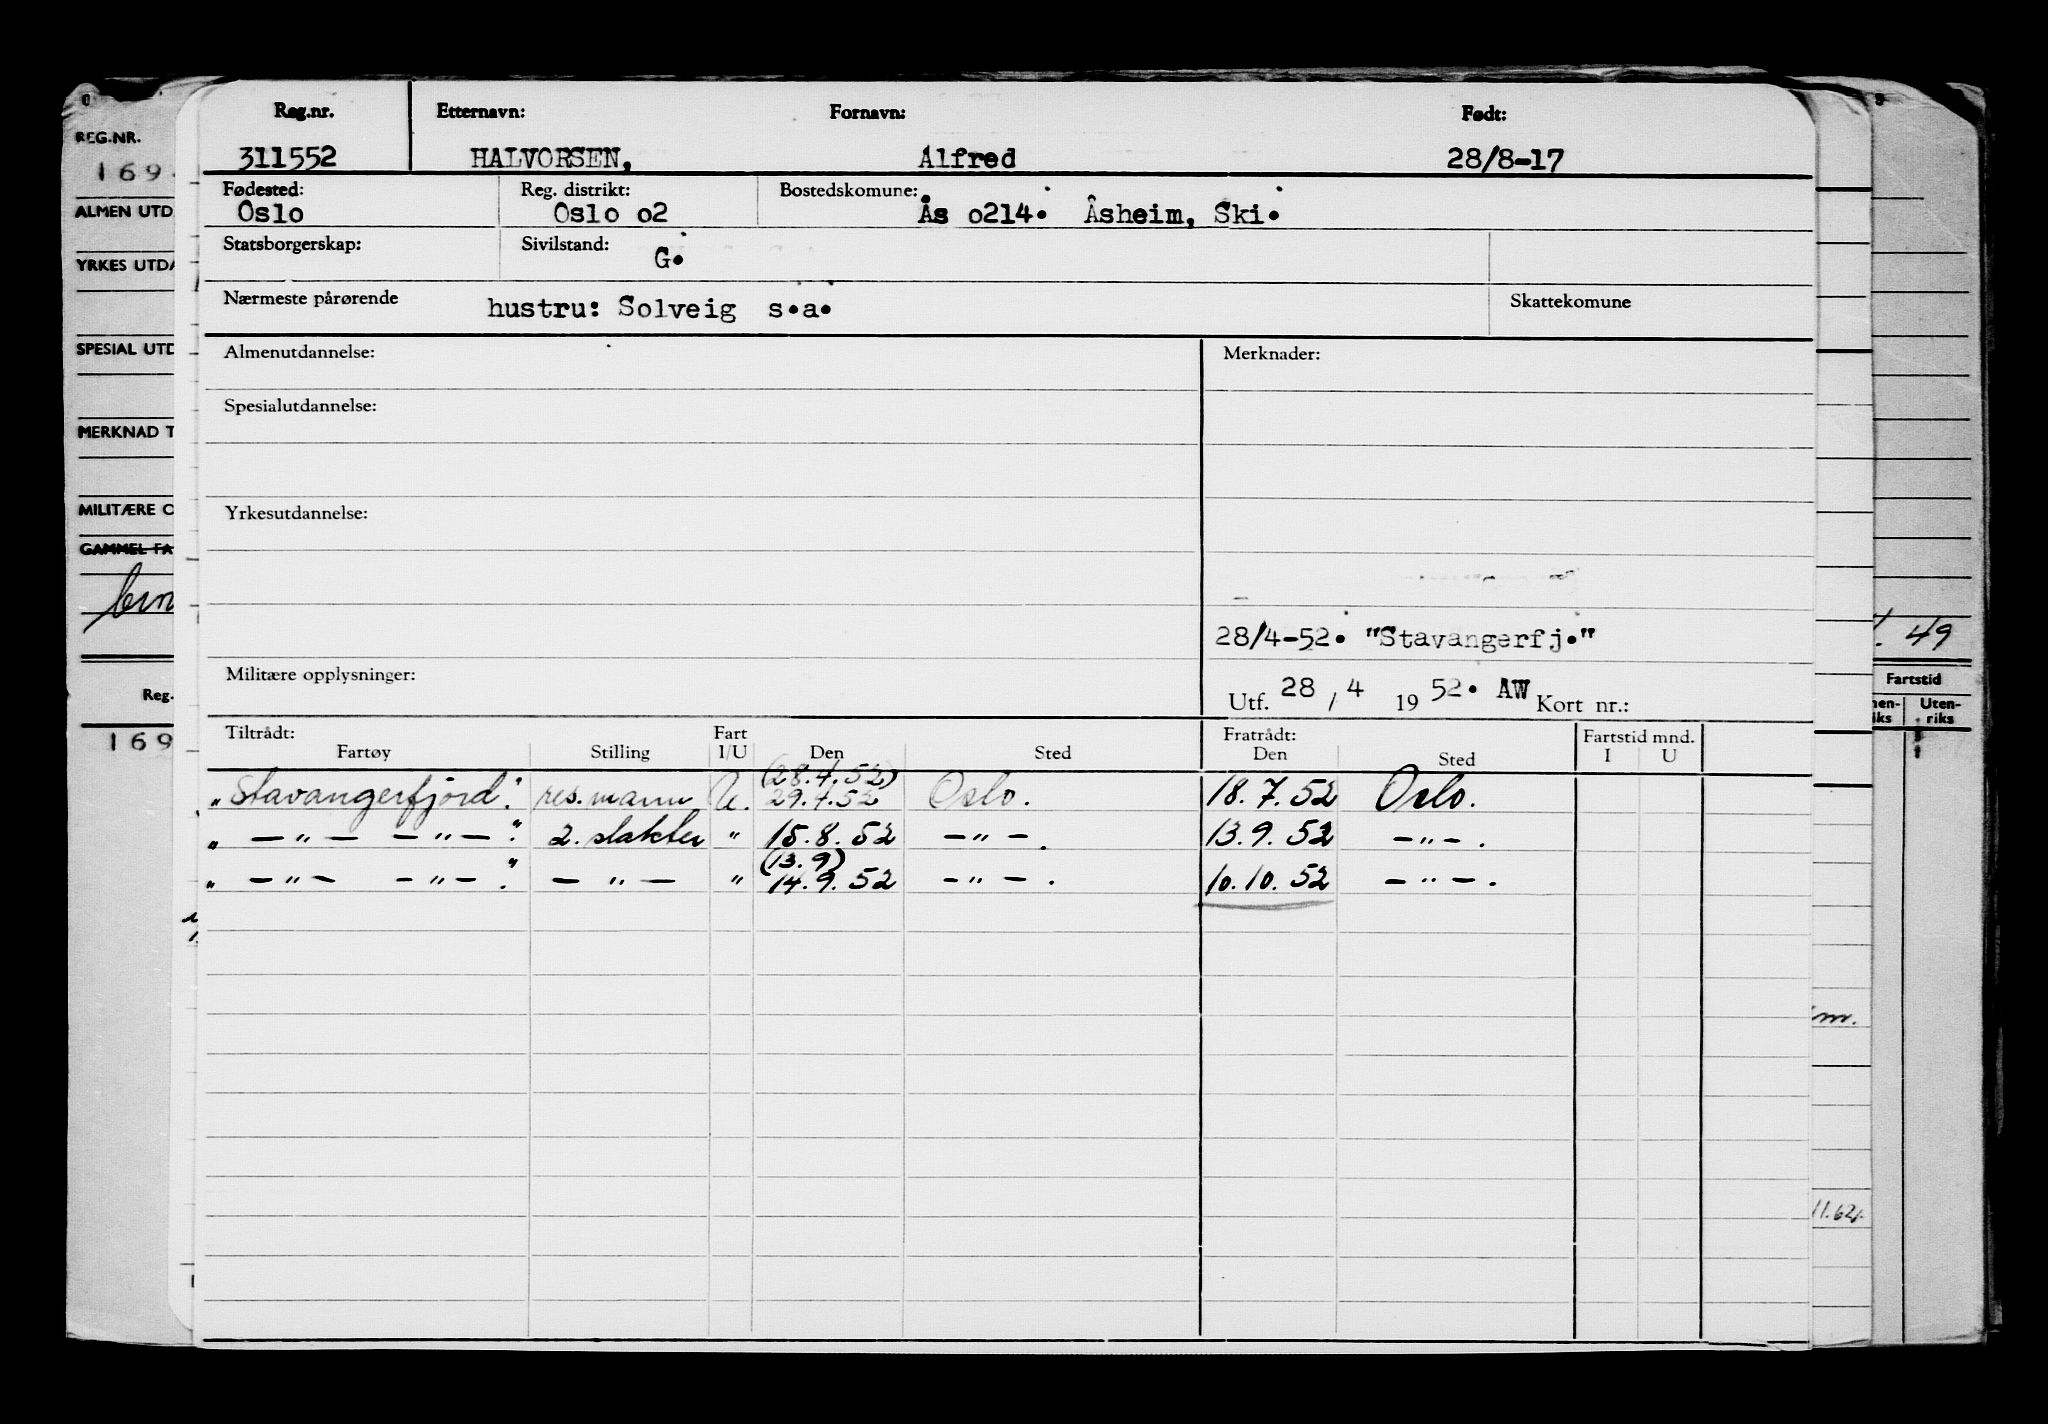 Reg.nr. Etternavn: Fornavn: Født:
311552 HALVORSEN, Alfred 28/8-17
Fødested: Reg. distrikt: Bostedskomune:
Oslo Oslo o2 Ås o214. Åsheim, Ski.
Statsborgerskap: Sivilstand:
G.
Nærmeste pårørende hustru: Solveig s.a. Skattekomune
Almenutdannelse: Merknader:
Spesialutdannelse:
Yrkesutdannelse:
28/4-52. "Stavangerfj."
Militære opplysninger:
Utf. 28 / 4 1952. AW Kort nr.:
Tiltrådt: Fart Fratrådt: Fartstid mnd.
Fartøy Stilling I/U Den Sted Den Sted I U
(28.4.52)
"Stavangerfjord". res.mann U. 29.4.52 Oslo. 18.7.52 Oslo.
" — " — — " — ." 2. slakter " 15.8.52 — " — . 13.9.52 — " — .
(13.9)
" — " — — " — ." — " — " 14.9.52 — " — . 10.10.52 — " — .
REG.NR.
169
ALMEN UTD
YRKES UTDA
SPESIAL UTD
MERKNAD T
MILITÆRE O
GAMMEL FA
Reg.
169
49
Fartstid
nen- Uten-
iks riks
m.
11.62